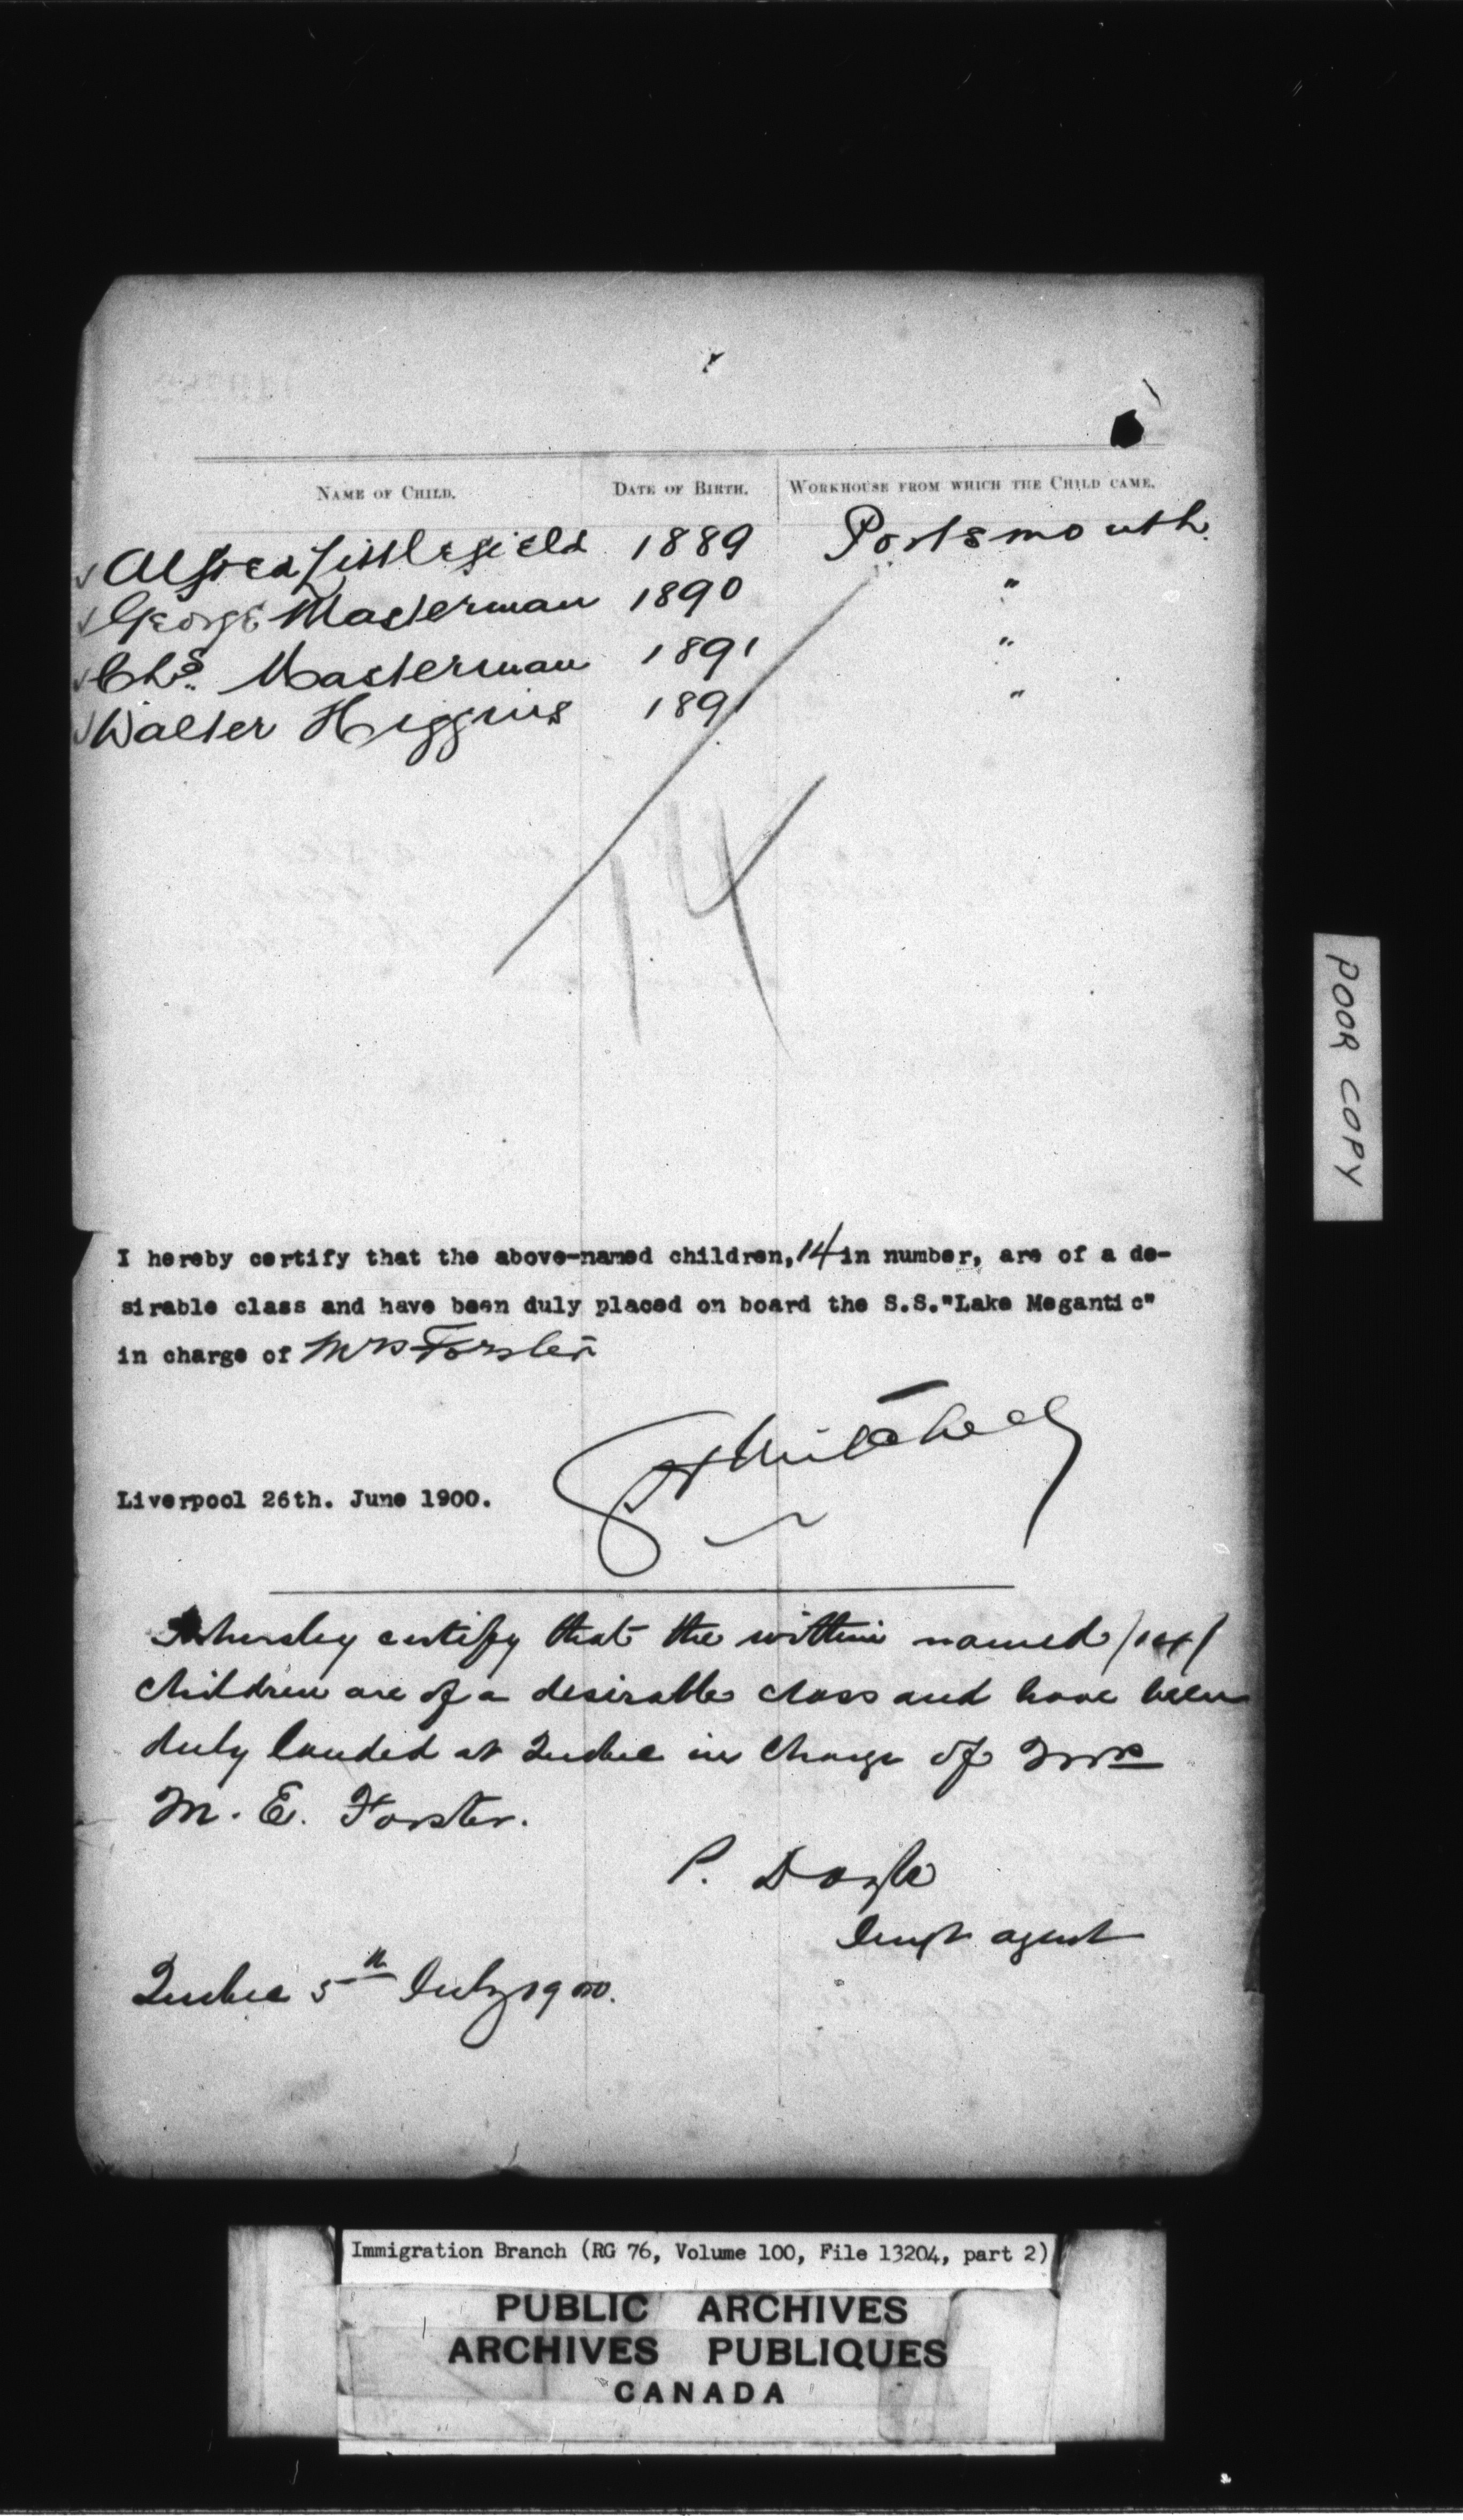 NAME OF CHILD. DATE OF BIRTH. WORKHOUSE FROM WHICH THE CHILD CAME.
Alfred Littlefield 1889 Portsmouth.
George Masterman 1890 "
Chs. Masterman 1891 "
Walter Higgins 1891 "
14
I hereby certify that the above-named children, 14 in number, are of a de-
sirable class and have been duly placed on board the S.S."Lake Megantic"
in charge of Mrs Forster
Mitchell
Liverpool 26th. June 1900.
I hereby certify that the within named /14/
children are of a desirable class and have been
duly landed at Quebec in charge of Mrs
M. E. Forster.
P. Doyle
Immgt agent
Quebec 5th July 1900.
POOR COPY
Immigration Branch (RG 76, Volume 100, File 13204, part 2)
PUBLIC ARCHIVES
ARCHIVES PUBLIQUES
CANADA